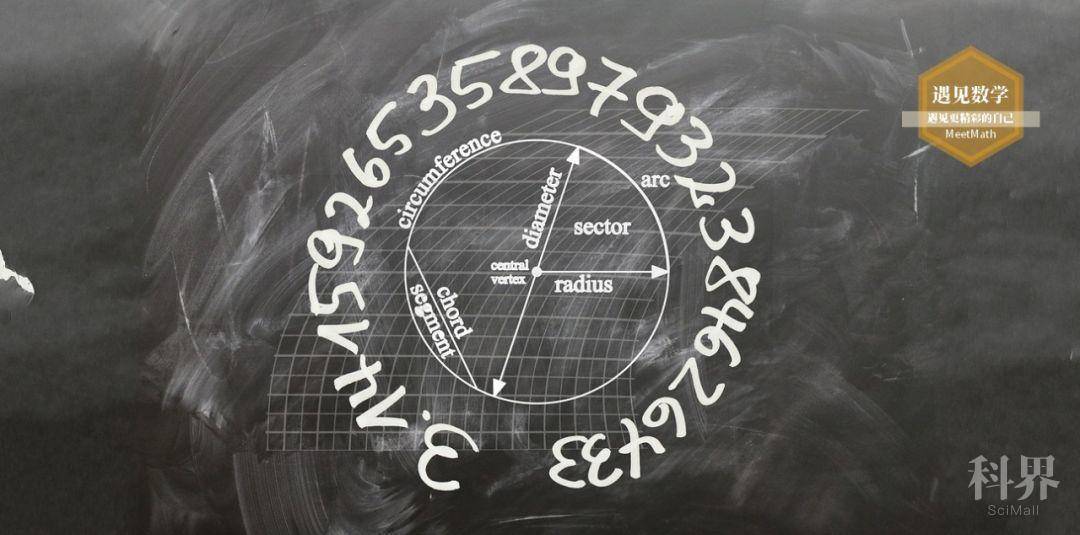 3.1415926535897932384626433
circumference
diameter
arc
sector
central
vertex
radius
chord
segment
遇见数学
遇见更精彩的自己
MeetMath
科界
SciMall